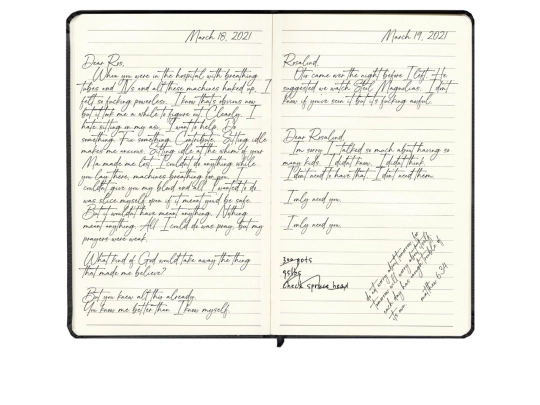 March 18, 2021
Dear Ros,
When you were in the hospital with breathing
tubes and IVs and all these machines hooked up, I
felt so fucking powerless. I know that's obvious now
but it took me a while to figure out. Clearly. I
hate sitting on my ass. I want to help. Do
something. Fix something. Contribute. Sitting idle
makes me anxious. Sitting idle at the whim of your
Ma made me lost. I couldn't do anything while
you lay there, machines breathing for you. I
couldn't give you my blood and all I wanted to do
was slice myself open if it meant you'd be safe.
But it wouldn't have meant anything. Nothing
meant anything. All I could do was pray, but my
prayers were weak.
What kind of God would take away the thing
that made me believe?
But you knew all this already.
You know me better than I know myself.
March 19, 2021
Rosalind,
came over the night before I left. He
suggested we watch Steel Magnolias. I don't
know if you've seen it but it's fucking awful.
Dear Rosalind,
I'm sorry I talked so much about having so
many kids. I didn't know. I didn't think.
I don't need to have that. I don't need them.
I only need you.
I only need you.
check spruce head
do not worry about tomorrow, for
tomorrow will worry about itself.
each day has enough trouble of
its own.
matthew 6:34